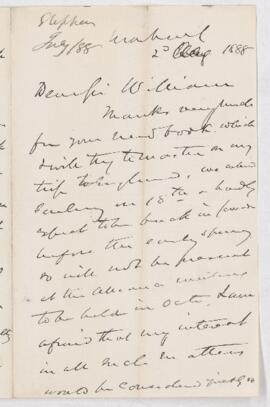 Stephen
July/88 Montreal
2d Aug 1888
Dear Sir William
Thanks very much
for your new book which
I will try to master on my
trip to England, we intend
sailing on 15th & hardly
expect to be back in Canada
before the early spring
so will not be present
at the Alliance meetings
to be held in Octr. I am
afraid that my interest
in all such matters
would be considered